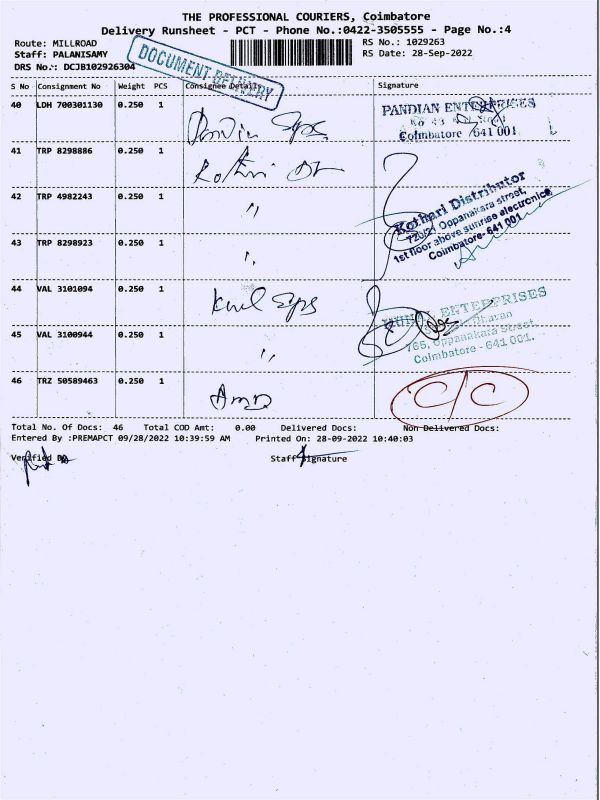 THE PROFESSIONAL COURIERS, Coimbatore
Delivery Runsheet - PCT - Phone No.:0422-3505555 - Page No.:4
Route: MILLROAD
RS No.: 1029263
Staff: PALANISAMY
RS Date: 28-Sep-2022
DRS No.: DCJB102926304
DOCUMENT DELIVERY
S No Consignment No Weight PCS Consignee Details Signature
40 LDH 700301130 0.250 1
PANDIAN ENTERPRISES
Coimbatore 641 001
41 TRP 8298886 0.250 1 Kothri
42 TRP 4982243 0.250 1 "
Kothari Distributor
720/21 Oppanakara street,
1st floor above sunrise electronics
Coimbatore- 641 001.
43 TRP 8298923 0.250 1 "
44 VAL 3101094 0.250 1
ENTERPRISES
45 VAL 3100944 0.250 1 "
765, Oppanakara Street,
Coimbatore - 641 001.
46 TRZ 50589463 0.250 1 AMD
C/C
Total No. Of Docs: 46 Total COD Amt: 0.00 Delivered Docs: Non Delivered Docs:
Entered By :PREMAPCT 09/28/2022 10:39:59 AM Printed On: 28-09-2022 10:40:03
Verified By
Staff Signature